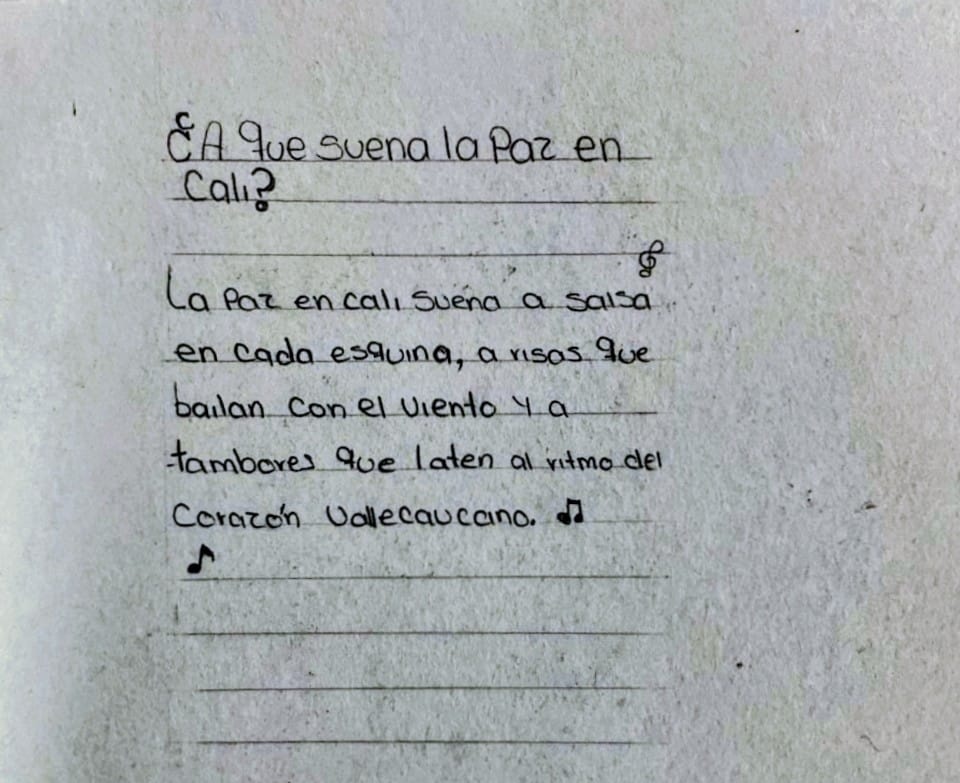 ¿A que suena la Paz en
Cali?
La Paz en cali suena a salsa
en cada esquina, a risas que
bailan con el viento y a
tambores que laten al ritmo del
Corazón Vallecaucano.